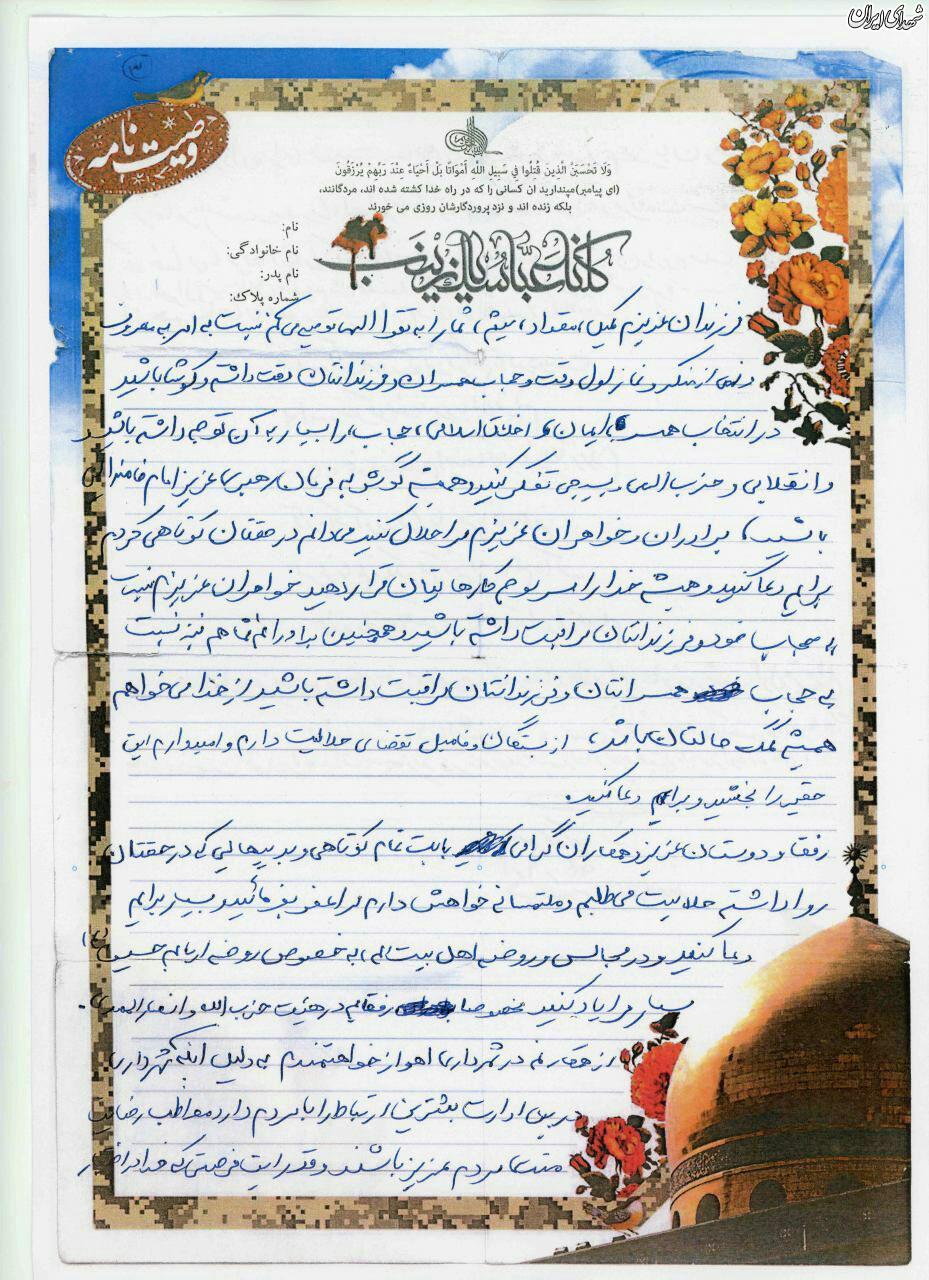 شهدای ایران
۳
وصیت نامه
وَلَا تَحْسَبَنَّ الَّذِينَ قُتِلُوا فِي سَبِيلِ اللَّهِ أَمْوَاتًا بَلْ أَحْيَاءٌ عِنْدَ رَبِّهِمْ يُرْزَقُونَ
(ای پیامبر)مپندارید ان کسانی را که در راه خدا کشته شده اند، مردگانند،
بلکه زنده اند و نزد پروردگارشان روزی می خورند
نام:
نام خانوادگی:
نام پدر:
شماره پلاک:
کلنا عباسک یا زینب
فرزندان عزیزم کمیل، مقداد، میثم، شما را به تقوا الهی توصیه می کنم نسبت به امر به معروف
و نهی از منکر و نماز اول وقت و حجاب همسران و فرزندانتان دقت داشته و کوشا باشید
در انتخاب همسر با ایمان و اخلاق اسلامی، حجاب، را بسیار به آن توجه داشته باشید
و انقلابی و حزب الهی و بسیجی تفکر کنید و همیشه گوش به فرمان رهبری عزیز امام خامنه ای
باشید، برادران و خواهران عزیزم مرا حلال کنید می دانم در حقتان کوتاهی کردم
برایم دعا کنید و همیشه خدا را سر لوحه کارهایتان قرار دهید خواهران عزیزم نسبت
به حجاب خود و فرزندانتان مراقبت داشته باشید و همچنین برادرانم شما هم نیز نسبت
به حجاب همسرانتان و فرزندانتان مراقبت داشته باشید از خدا می خواهم
همیشه کمک حالتان باشد، از بستگان و فامیل تقضای حلالیت دارم و امیدوارم این
حقیر را ببخشید و برایم دعا کنید.
رفقا و دوستان عزیز و همکاران گرامی بابت تمام کوتاهی و بدیهایی که در حقتان
روا داشته حلالیت می طلبم و ملتمسانه خواهش دارم مرا عفو بفرمائید و بسیار برایم
دعا کنید و در مجالس و روضه اهل بیت الهی، به خصوص روضه اربابم حسین (ع)
بسیار مرا یاد کنید مخصوصا رفقایم در هیئت حزب الله و انصار المهدی.
از همکارانم در شهرداری اهواز خواهشمندم به دلیل اینکه شهرداری
در بین ادارات بیشترین ارتباط را با مردم دارد مواظب رضایت
مردم عزیز باشند و قدر این فرصتی که خدا در اختیار